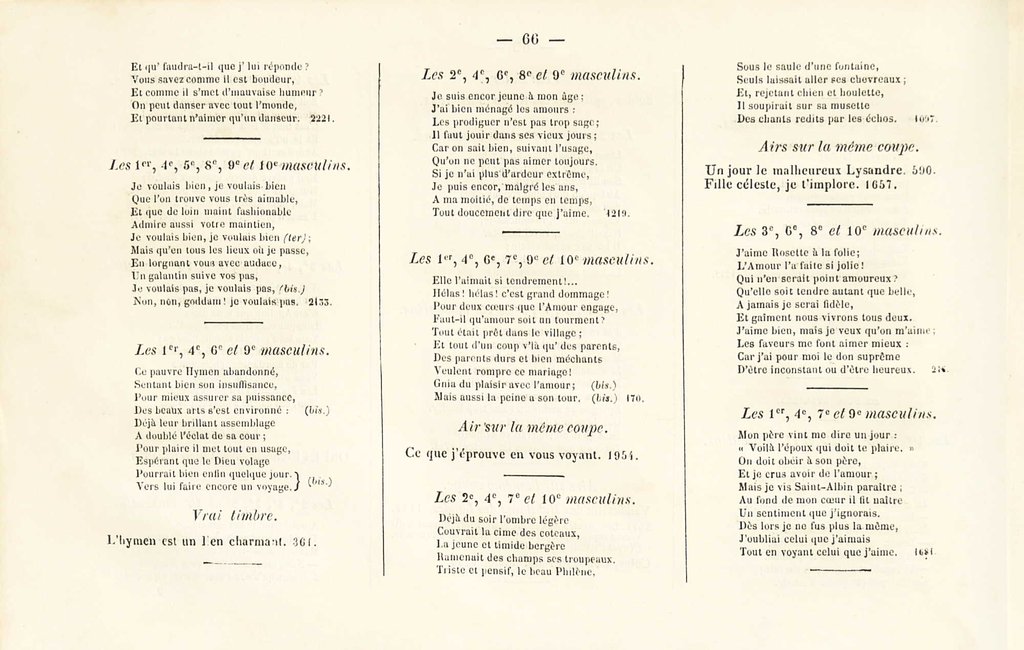 — 66 —
Et qu' faudra-t-il que j' lui réponde ?
Vous savez comme il est boudeur,
Et comme il s'met d'mauvaise humeur ?
On peut danser avec tout l'monde,
Et pourtant n'aimer qu'un danseur. 2221.
Les 1er, 4e, 5e, 8e, 9e et 10e masculins.
Je voulais bien, je voulais bien
Que l'on trouve vous très aimable,
Et que de loin maint fashionable
Admire aussi votre maintien,
Je voulais bien, je voulais bien (ter);
Mais qu'en tous les lieux où je passe,
En lorgnant vous avec audace,
Un galantin suive vos pas,
Je voulais pas, je voulais pas, (bis.)
Non, non, goddam! je voulais pas. 2133.
Les 1er, 4e, 6e et 9e masculins.
Ce pauvre Hymen abandonné,
Sentant bien son insuffisance,
Pour mieux assurer sa puissance,
Des beaux arts s'est environné : (bis.)
Déjà leur brillant assemblage
A doublé l'éclat de sa cour ;
Pour plaire il met tout en usage,
Espérant que le Dieu volage
Pourrait bien enfin quelque jour.
Vers lui faire encore un voyage. } (bis.)
Vrai timbre.
L'hymen est un lien charmant. 361.
Les 2e, 4e, 6e, 8e et 9e masculins.
Je suis encor jeune à mon âge ;
J'ai bien ménagé les amours :
Les prodiguer n'est pas trop sage ;
Il faut jouir dans ses vieux jours ;
Car on sait bien, suivant l'usage,
Qu'on ne peut pas aimer toujours.
Si je n'ai plus d'ardeur extrême,
Je puis encor, malgré les ans,
A ma moitié, de temps en temps,
Tout doucement dire que j'aime. 1219.
Les 1er, 4e, 6e, 7e, 9e et 10e masculins.
Elle l'aimait si tendrement!...
Hélas! hélas! c'est grand dommage!
Pour deux cœurs que l'Amour engage,
Faut-il qu'amour soit un tourment?
Tout était prêt dans le village ;
Et tout d'un coup v'là qu' des parents,
Des parents durs et bien méchants
Veulent rompre ce mariage!
Gnia du plaisir avec l'amour ; (bis.)
Mais aussi la peine a son tour. (bis.) 170.
Air sur la même coupe.
Ce que j'éprouve en vous voyant. 1954.
Les 2e, 4e, 7e et 10e masculins.
Déjà du soir l'ombre légère
Couvrait la cime des coteaux,
La jeune et timide bergère
Ramenait des champs ses troupeaux.
Triste et pensif, le beau Philène,
Sous le saule d'une fontaine,
Seuls laissait aller ses chevreaux ;
Et, rejetant chien et houlette,
Il soupirait sur sa musette
Des chants redits par les échos. 1097.
Airs sur la même coupe.
Un jour le malheureux Lysandre. 590.
Fille céleste, je t'implore. 1657.
Les 3e, 6e, 8e et 10e masculins.
J'aime Rosette à la folie;
L'Amour l'a faite si jolie!
Qui n'en serait point amoureux?
Qu'elle soit tendre autant que belle,
A jamais je serai fidèle,
Et gaîment nous vivrons tous deux.
J'aime bien, mais je veux qu'on m'aime ;
Les faveurs me font aimer mieux :
Car j'ai pour moi le don suprême
D'être inconstant ou d'être heureux.
Les 1er, 4e, 7e et 9e masculins.
Mon père vint me dire un jour :
« Voilà l'époux qui doit te plaire. »
On doit obéir à son père,
Et je crus avoir de l'amour ;
Mais je vis Saint-Albin paraître ;
Au fond de mon cœur il fit naître
Un sentiment que j'ignorais.
Dès lors je ne fus plus la même,
J'oubliai celui que j'aimais
Tout en voyant celui que j'aime. 1681